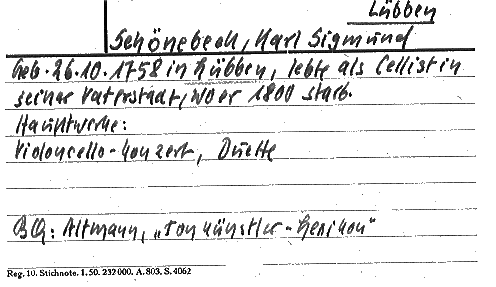 Lübben
Schönebeck, Karl Sigmund
Geb. 26.10.1758 in Lübben, lebte als Cellist in
seiner Vaterstadt, wo er 1800 starb.
Hauptwerke:
Violoncello-Konzert, Duette
BQ: Altmann, „Tonkünstler-Lexikon"
Reg. 10. Stichnote. 1. 50. 232000. A. 803. S. 4062